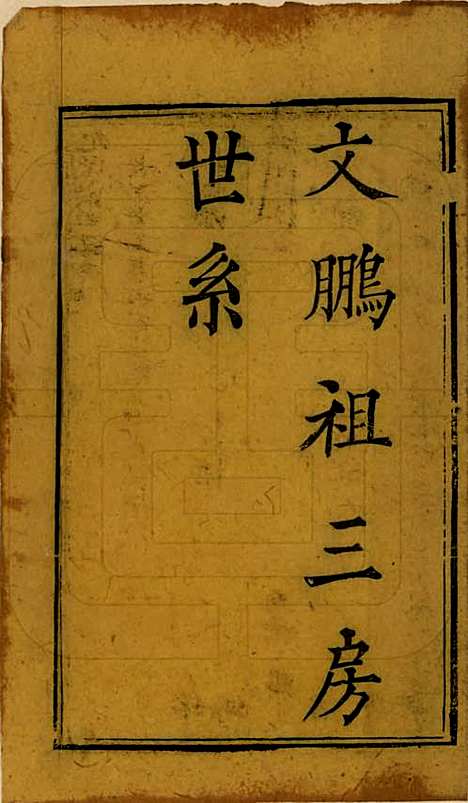 文鵬祖三房
世系